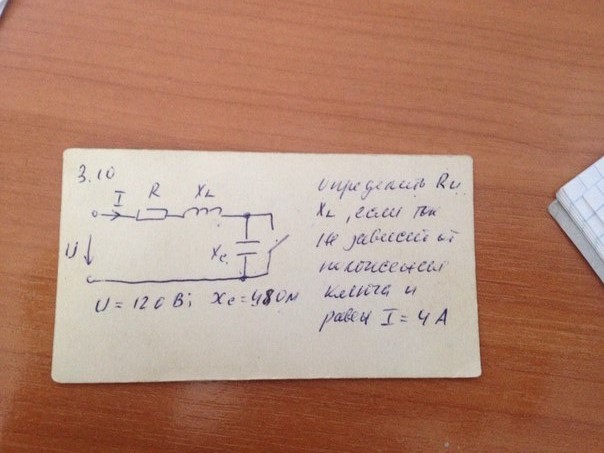 3.10
I R XL
U
Xc
U = 120 В; Xc = 48 Ом
определить R и
XL, если ток
не зависит от
положения
ключа и
равен I = 4 А